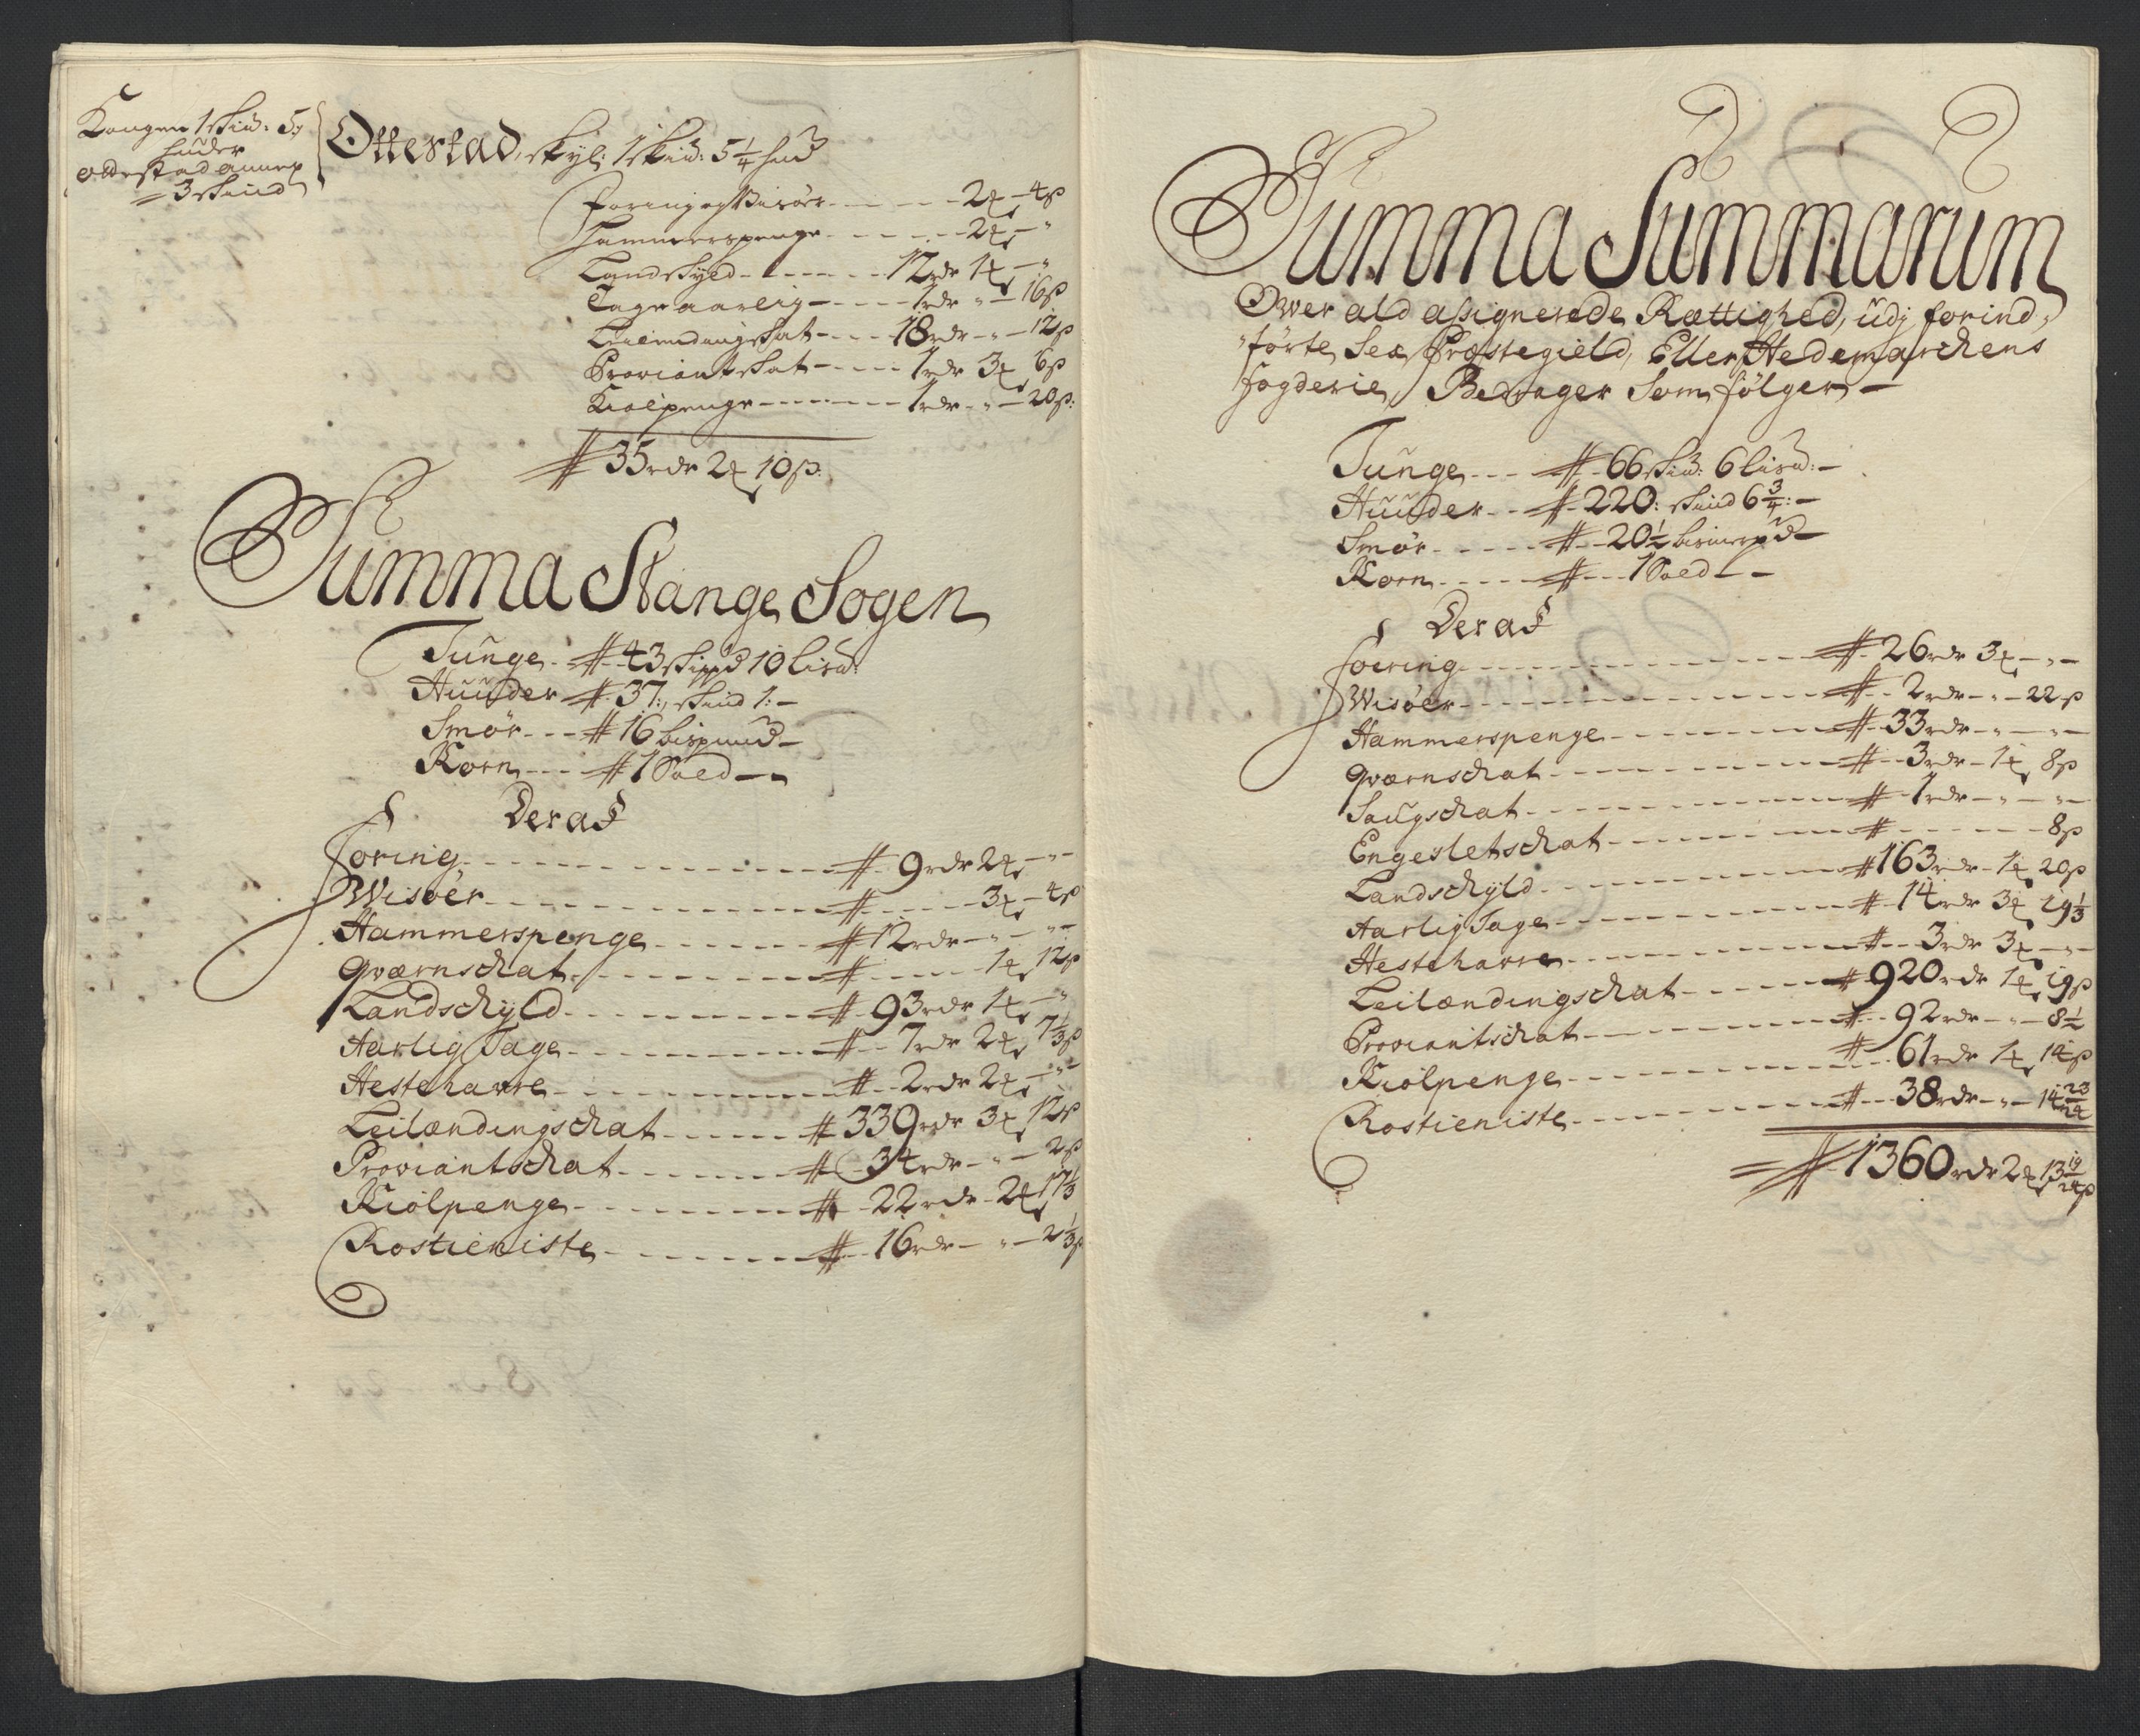 Kongen 1 skind: 5
huder
ottestad annex
= 3 skind
Ottestad, skyl: 1 skind: 5 1/4 hud
Foring og Wisöer - - - 2 ꝶ - 4 ß
Hammerspenge - - - - - 2 ꝶ - "
Landskyld - - - - - - 12 rdr 1 ꝶ - "
Tage aarlig - - - - 1 rdr " - 16 ß
Leilendingskat - - - 18 rdr - " - 12 ß
Proviantskat - - - - 1 rdr 3 ꝶ 6 ß
Kiölpenge - - - - - - 1 rdr - " - 20 ß:
# 35 rdr 2 ꝶ 10 ß:
Summa Stange Sogen
Tunge - # - 43 skippd 10 lisd:
Huuder # - 37:, skind 1: -
Smör - - - # 16 bispund -
Korn - - - # 1 Soed - -
Deraf
Foring - - - - - - # - 9 rdr 2 ꝶ - " -
Wisöer - - - - - - # - - - - - 3 ꝶ - 4 ß
Hammerspenge - - - - - - # 12 rdr - " - " -
Qværnschat - - - - - - # - - - - 1 ꝶ 12 ß
Landschyld - - - - - - # - 93 rdr 1 ꝶ - "
Aarlig Tage - - - - - - # - - 7 rdr 2 ꝶ 7 1/3 ß
Hestehavre - - - - - - # - - 2 rdr 2 ꝶ - " -
Leilændingschat - - - - - # 339 rdr 3 ꝶ 12 ß
Proviantschat - - - - - - # - 34 rdr - " - 2 ß
Kiölpenge - - - - - - # - 22 rdr - 2 ꝶ 17 1/3
Rostieniste - - - - - - # - 16 rdr - " - 2 1/3 ß
Summa Summarum
Ower ald assignerede Rættighed, udj forind,
"förte, Sex Præstegield, Eller Hedemarchens
Fogderie, Bedrager Som fölger -
Tunge - - - # - 66 skid: 6 lisd: -
Huuder - - # - 220: skind 6 3/4: -
Smör - - - - - # - - 20 1/2 bismerpd -
Korn - - - - - # - - - 1 Soed - -
Deraf
Foering - - - - - - # - 26 rdr 3 ꝶ - " -
Wisöer - - - - - - # - - 2 rdr - " - 22 ß
Hammerspenge - - - - - - # - 33 rdr - " - " -
Qværnschat - - - - - - # - - 3 rdr - 1 ꝶ 8 ß
Saugschat - - - - - - # - 1 rdr - " - " -
Engesletschat - - - - - - # - - - - - - 8 ß
Landschyld - - - - - - # 163 rdr - 1 ꝶ 20 ß
Aarlig Tage - - - - - - # - 14 rdr 3 ꝶ 19 1/3
Hestehavre - - - - - - # - - 3 rdr 3 ꝶ - " -
Leilændingschat - - - - - # 920 rdr 1 ꝶ 19 ß
Proviantschat - - - - - - # - - 92 rdr - " - 8 1/2
Kiölpenge - - - - - - # - - 61 rdr 1 ꝶ 14 ß
Rostieniste - - - - - - # - - 38 rdr - " - 14 23/24
= # 1360 rdr 2 ꝶ 13 19/24 ß